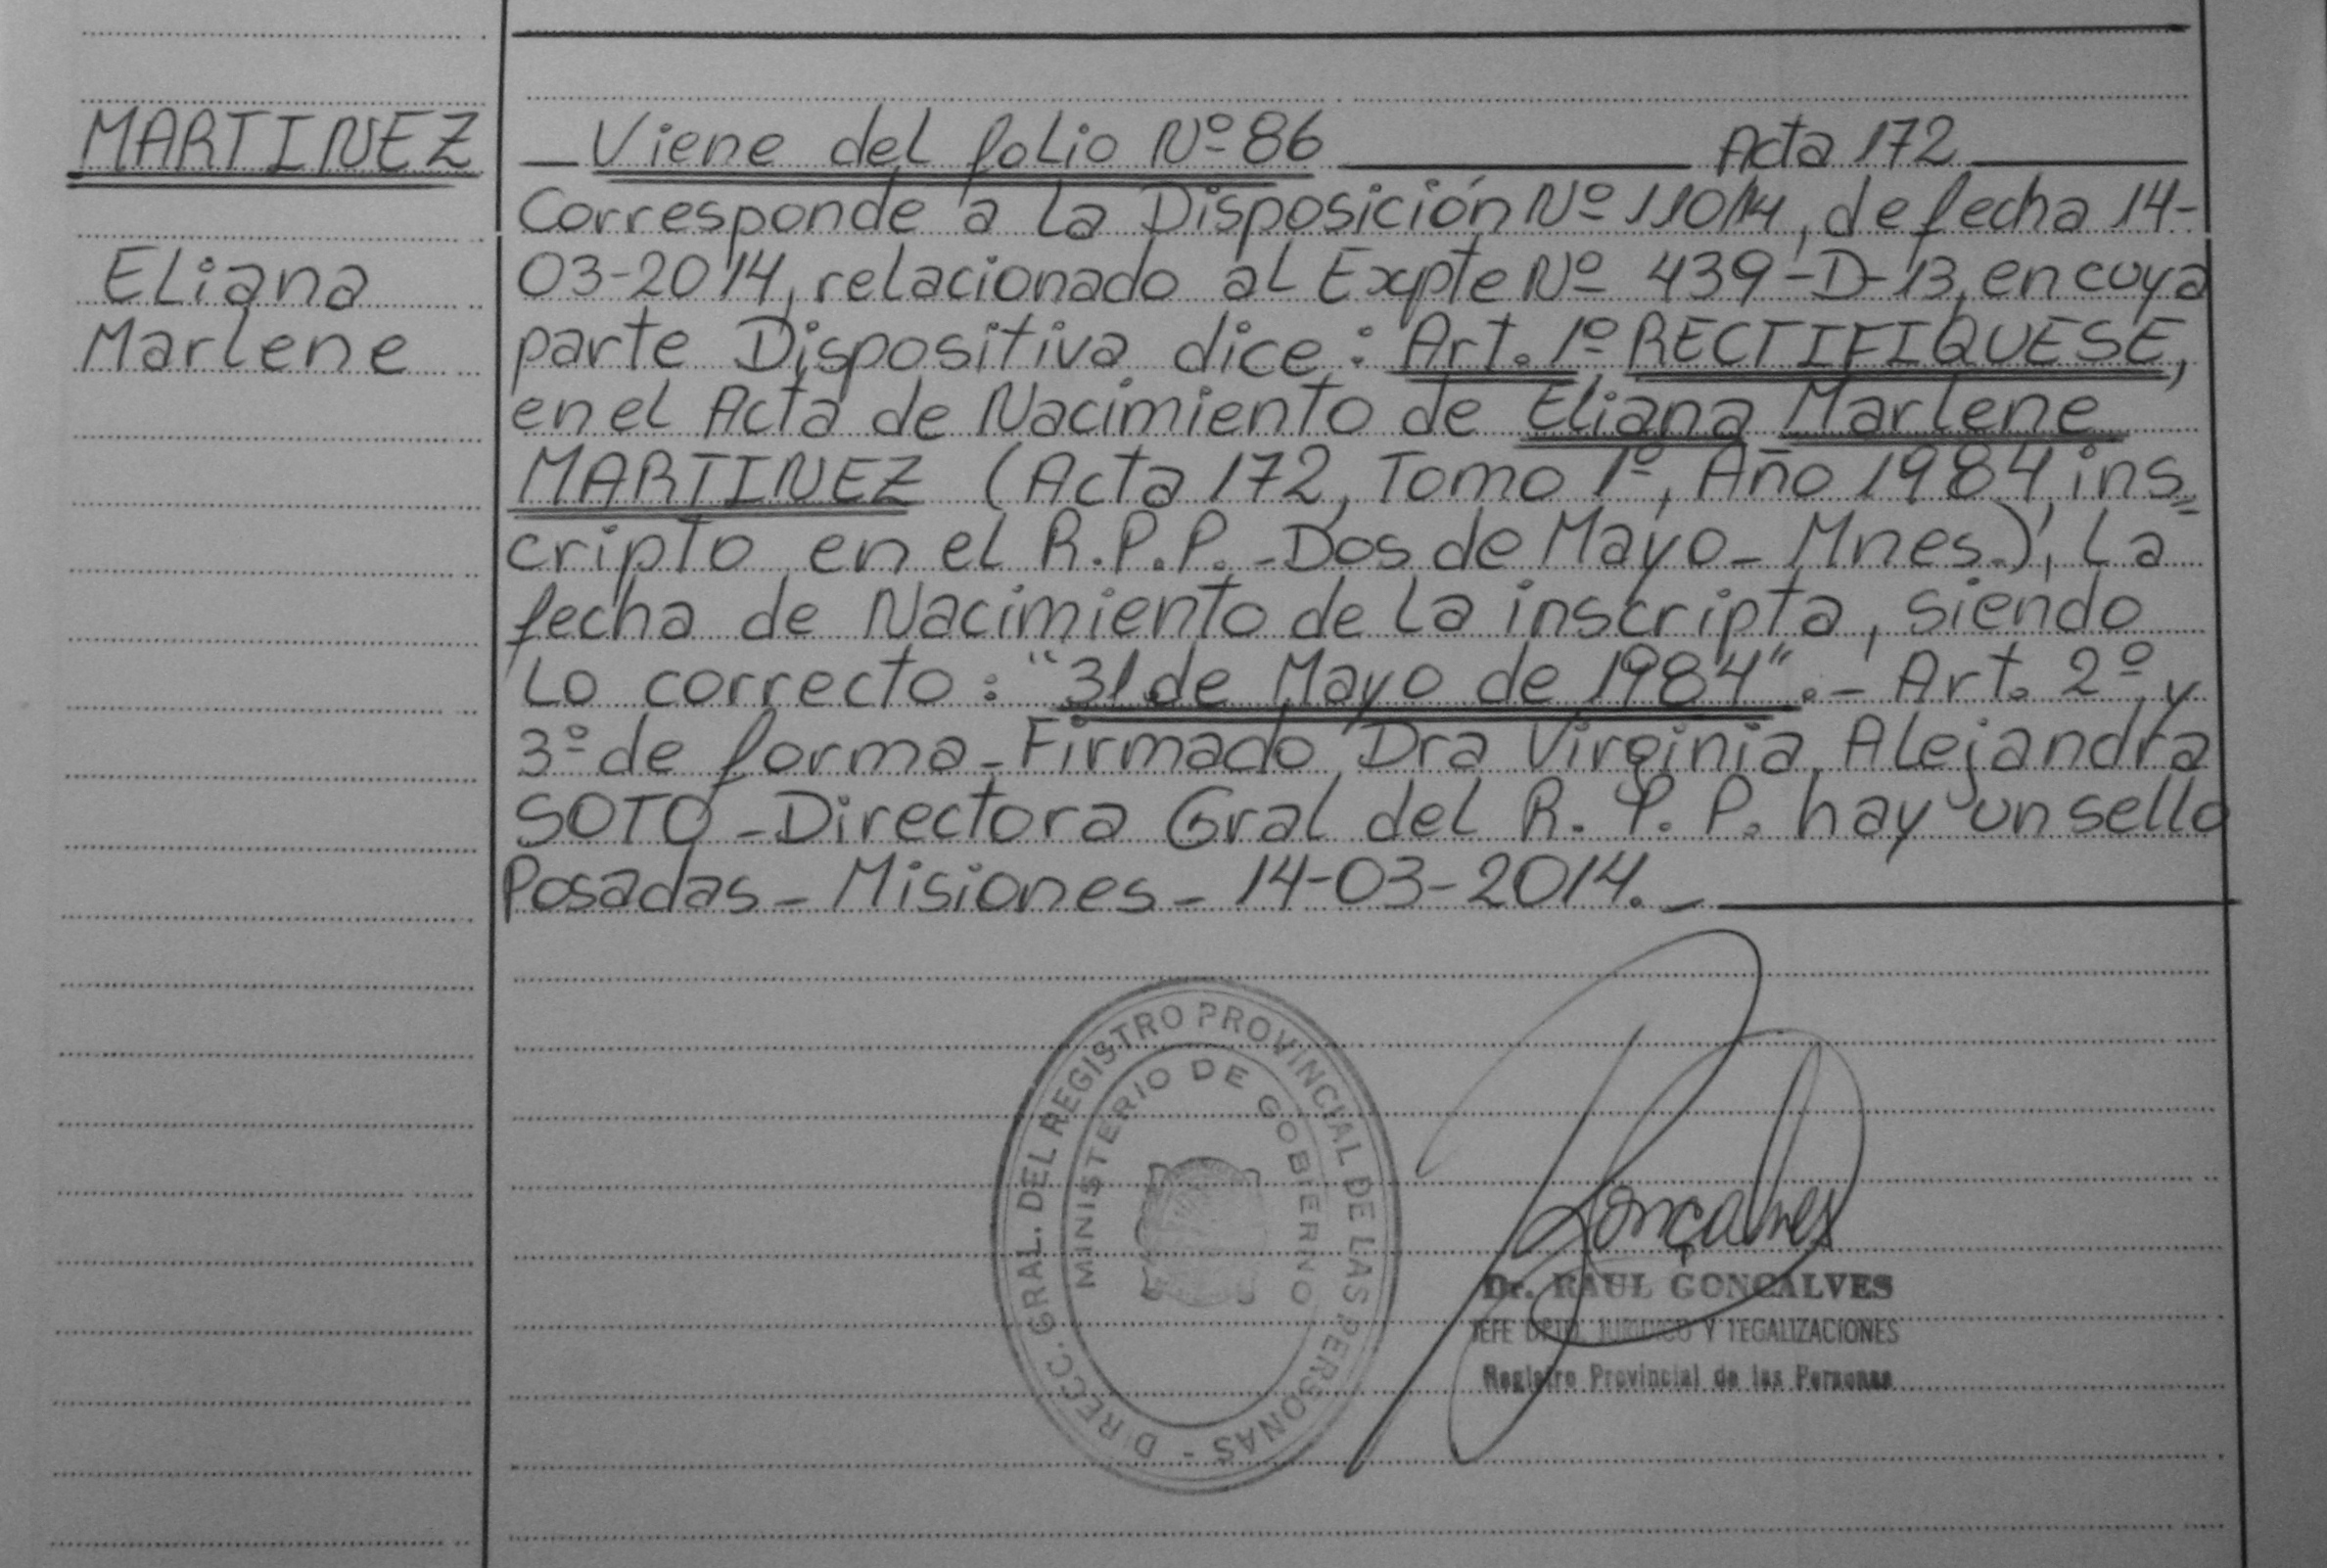 MARTINEZ
Eliana
Marlene
Viene del folio Nº 86 Acta 172
Corresponde a la Disposición Nº 110/14, de fecha 14-
03-2014, relacionado al Expte Nº 439-D-13, en cuya
parte Dispositiva dice: Art. 1º RECTIFIQUESE,
en el Acta de Nacimiento de Eliana Marlene
MARTINEZ (Acta 172, Tomo 1º, Año 1984, ins=
cripto en el R.P.P. - Dos de Mayo - Mnes.), La
fecha de Nacimiento de la inscripta, siendo
Lo correcto: "31 de Mayo de 1984".- Art. 2º y
3º de forma - Firmado Dra Virginia Alejandra
SOTO - Directora Gral del R. P. P. hay un sello
Posadas - Misiones - 14-03-2014. -
DIRECC. GRAL. DEL REGISTRO PROVINCIAL DE LAS PERSONAS -
MINISTERIO DE GOBIERNO
Gonçalves
Dr. RAUL GONÇALVES
JEFE DPTO. JURIDICO Y LEGALIZACIONES
Registro Provincial de las Personas